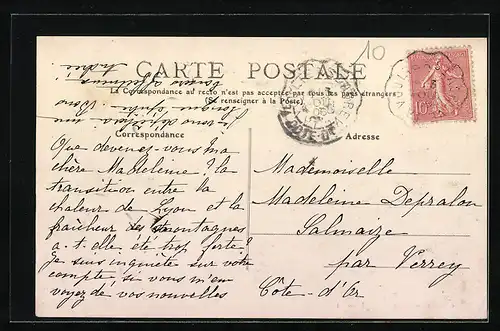 10
CARTE POSTALE
La Correspondance au recto n'est pas acceptée par tous les pays étrangers
(Se renseigner à la Poste).
Correspondance
Adresse
Que devenez-vous ma
chère Madeleine? la
transition entre la
chaleur de Lyon et la
fraîcheur des montagnes
a-t-elle été trop forte?
Je suis inquiète sur votre
compte, si vous m'en
voyez de vos nouvelles
Mademoiselle
Madeleine Depralon
Salmaize
par Verrey
Côte-d'Or